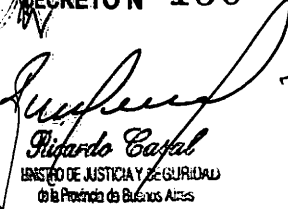 DECRETO N
Ricardo Casal
MINISTRO DE JUSTICIA Y SEGURIDAD
de la Provincia de Buenos Aires